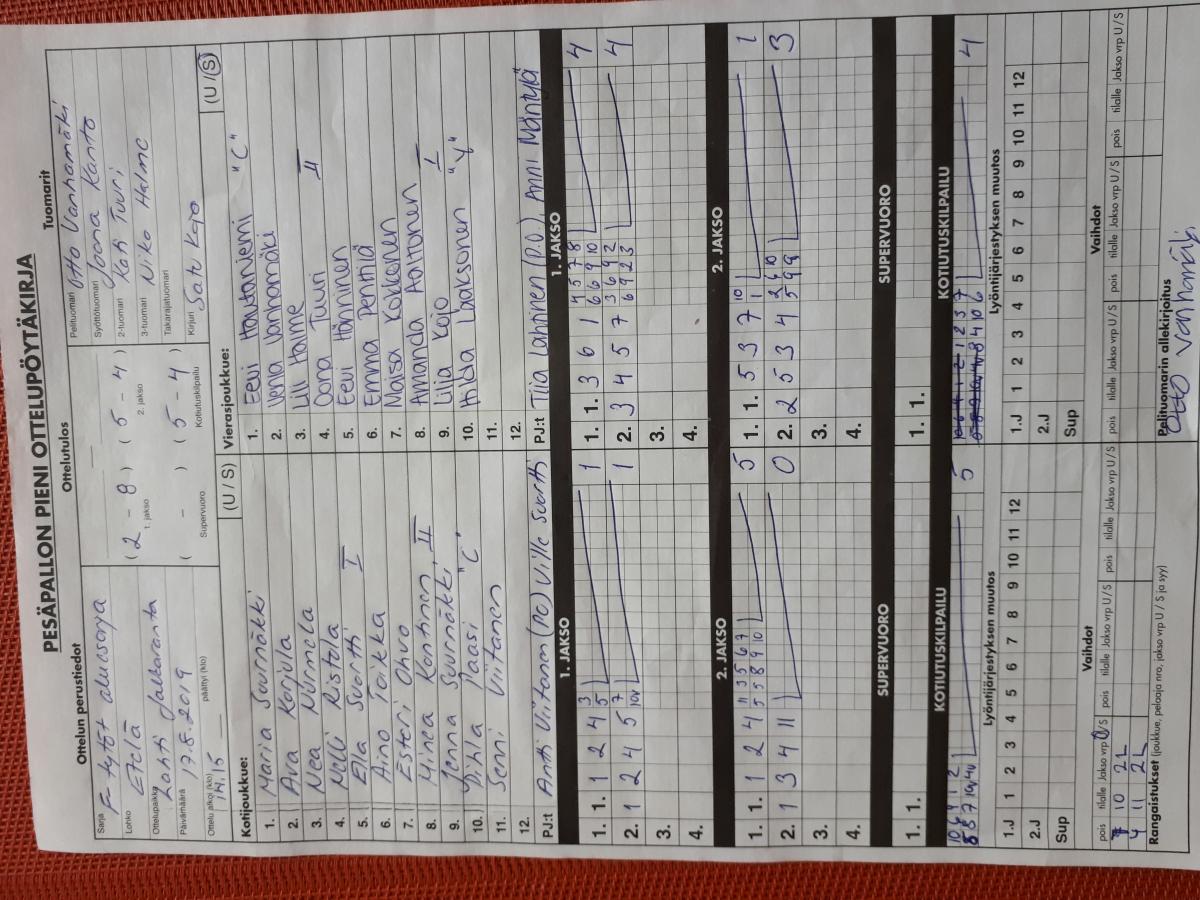 PESÄPALLON PIENI OTTELUPÖYTÄKIRJA
Ottelun perustiedot
Sarja F-tytöt aluesarja
Lohko Etelä
Ottelupaikka Lahti Jalkaranta
Päivämäärä 17.8.2019
Ottelu alkoi (klo) 14.15 päättyi (klo)
Ottelutulos
( 2 - 8 ) ( 5 - 4 )
1. jakso 2. jakso
( - ) ( 5 - 4 )
Supervuoro Kotiutuskilpailu
Tuomarit
Pelituomari Otto Vanhamäki
Syöttötuomari Joona Kanto
2-tuomari Kati Tuuri
3-tuomari Niko Halme
Takarajatuomari
Kirjuri Satu Kojo
Kotijoukkue: (U / S)
1. Maria Suurnäkki
2. Ava Karjula
3. Nea Nurmela
4. Nelli Ristola
5. Ella Suortti I
6. Aino Torikka
7. Esteri Ohvo
8. Minea Kontinen II
9. Jenna Suurnäkki
10. Pihla Paasi "C"
11. Senni Viitanen
12.
PJ:t Antti Viitanen (PO) Ville Suortti
Vierasjoukkue: (U / S)
1. Eevi Hautaniemi "C"
2. Venla Vanhamäki
3. Lili Halme
4. Oona Tuuri II
5. Eevi Hänninen
6. Emma Penttilä
7. Maisa Kokkonen
8. Amanda Aaltonen
9. Liia Kojo I
10. Hilda Laaksonen "Y"
11.
12.
PJ:t Tiia Lahtinen (P.O.), Anni Mäntylä
1. JAKSO
1. 1. 1 2 4 3 5 1
2. 1 2 4 5 7 10 1
3.
4.
1. JAKSO
1. 1. 3 6 1 4 6 5 6 7 9 8 10 4
2. 3 4 5 7 3 6 6 9 9 2 2 3 4
3.
4.
2. JAKSO
1. 1. 1 2 4 11 5 3 5 5 8 6 9 7 10 5
2. 1 3 4 11 0
3.
4.
2. JAKSO
1. 1. 5 3 7 1 10 1
2. 2 5 3 4 3
3.
4.
SUPERVUORO
1. 1.
SUPERVUORO
1. 1.
KOTIUTUSKILPAILU
5
KOTIUTUSKILPAILU
4
Lyöntijärjestyksen muutos
1.J 1 2 3 4 5 6 7 8 9 10 11 12
2.J
Sup
Lyöntijärjestyksen muutos
1.J 1 2 3 4 5 6 7 8 9 10 11 12
2.J
Sup
Vaihdot
pois tilalle Jakso vrp U/S pois tilalle Jakso vrp U/S pois tilalle Jakso vrp U/S
7 10 2L
4 11 2L
Vaihdot
pois tilalle Jakso vrp U/S pois tilalle Jakso vrp U/S pois tilalle Jakso vrp U/S
Rangaistukset (joukkue, pelaaja nro, jakso vrp U / S ja syy)
Pelituomarin allekirjoitus
Otto Vanhamäki